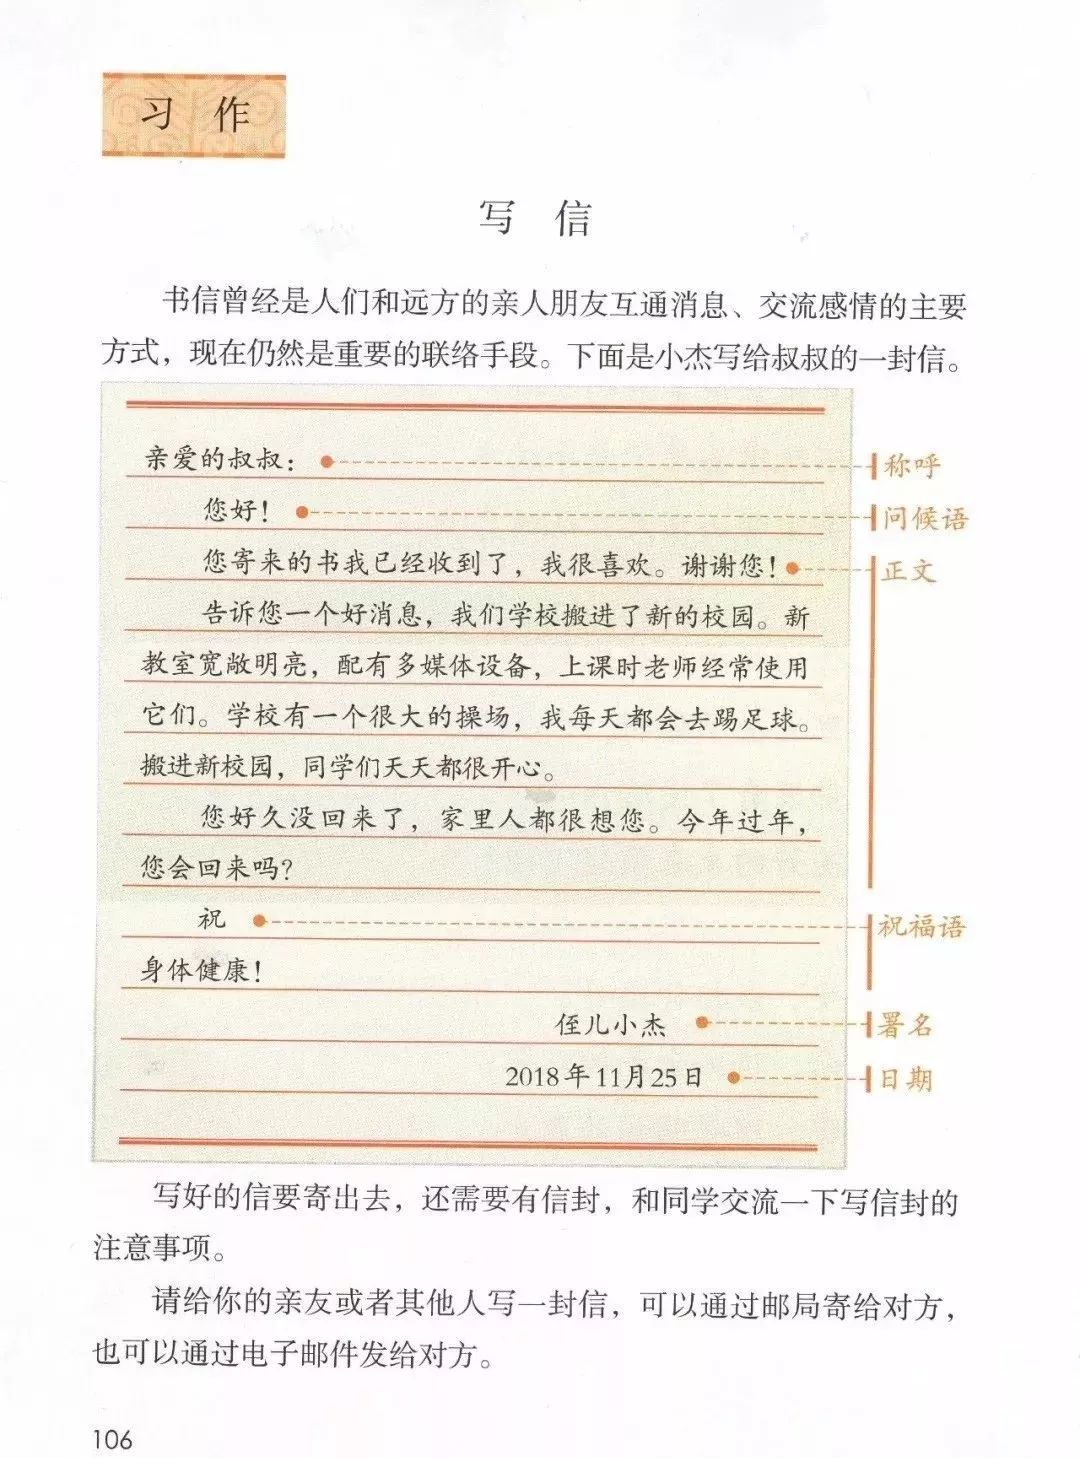 习 作
写 信
书信曾经是人们和远方的亲人朋友互通消息、交流感情的主要
方式，现在仍然是重要的联络手段。下面是小杰写给叔叔的一封信。
亲爱的叔叔：
称呼
您好！
问候语
您寄来的书我已经收到了，我很喜欢。谢谢您！
正文
告诉您一个好消息，我们学校搬进了新的校园。新
教室宽敞明亮，配有多媒体设备，上课时老师经常使用
它们。学校有一个很大的操场，我每天都会去踢足球。
搬进新校园，同学们天天都很开心。
您好久没回来了，家里人都很想您。今年过年，
您会回来吗？
祝
祝福语
身体健康！
侄儿小杰
署名
2018年11月25日
日期
写好的信要寄出去，还需要有信封，和同学交流一下写信封的
注意事项。
请给你的亲友或者其他人写一封信，可以通过邮局寄给对方，
也可以通过电子邮件发给对方。
106